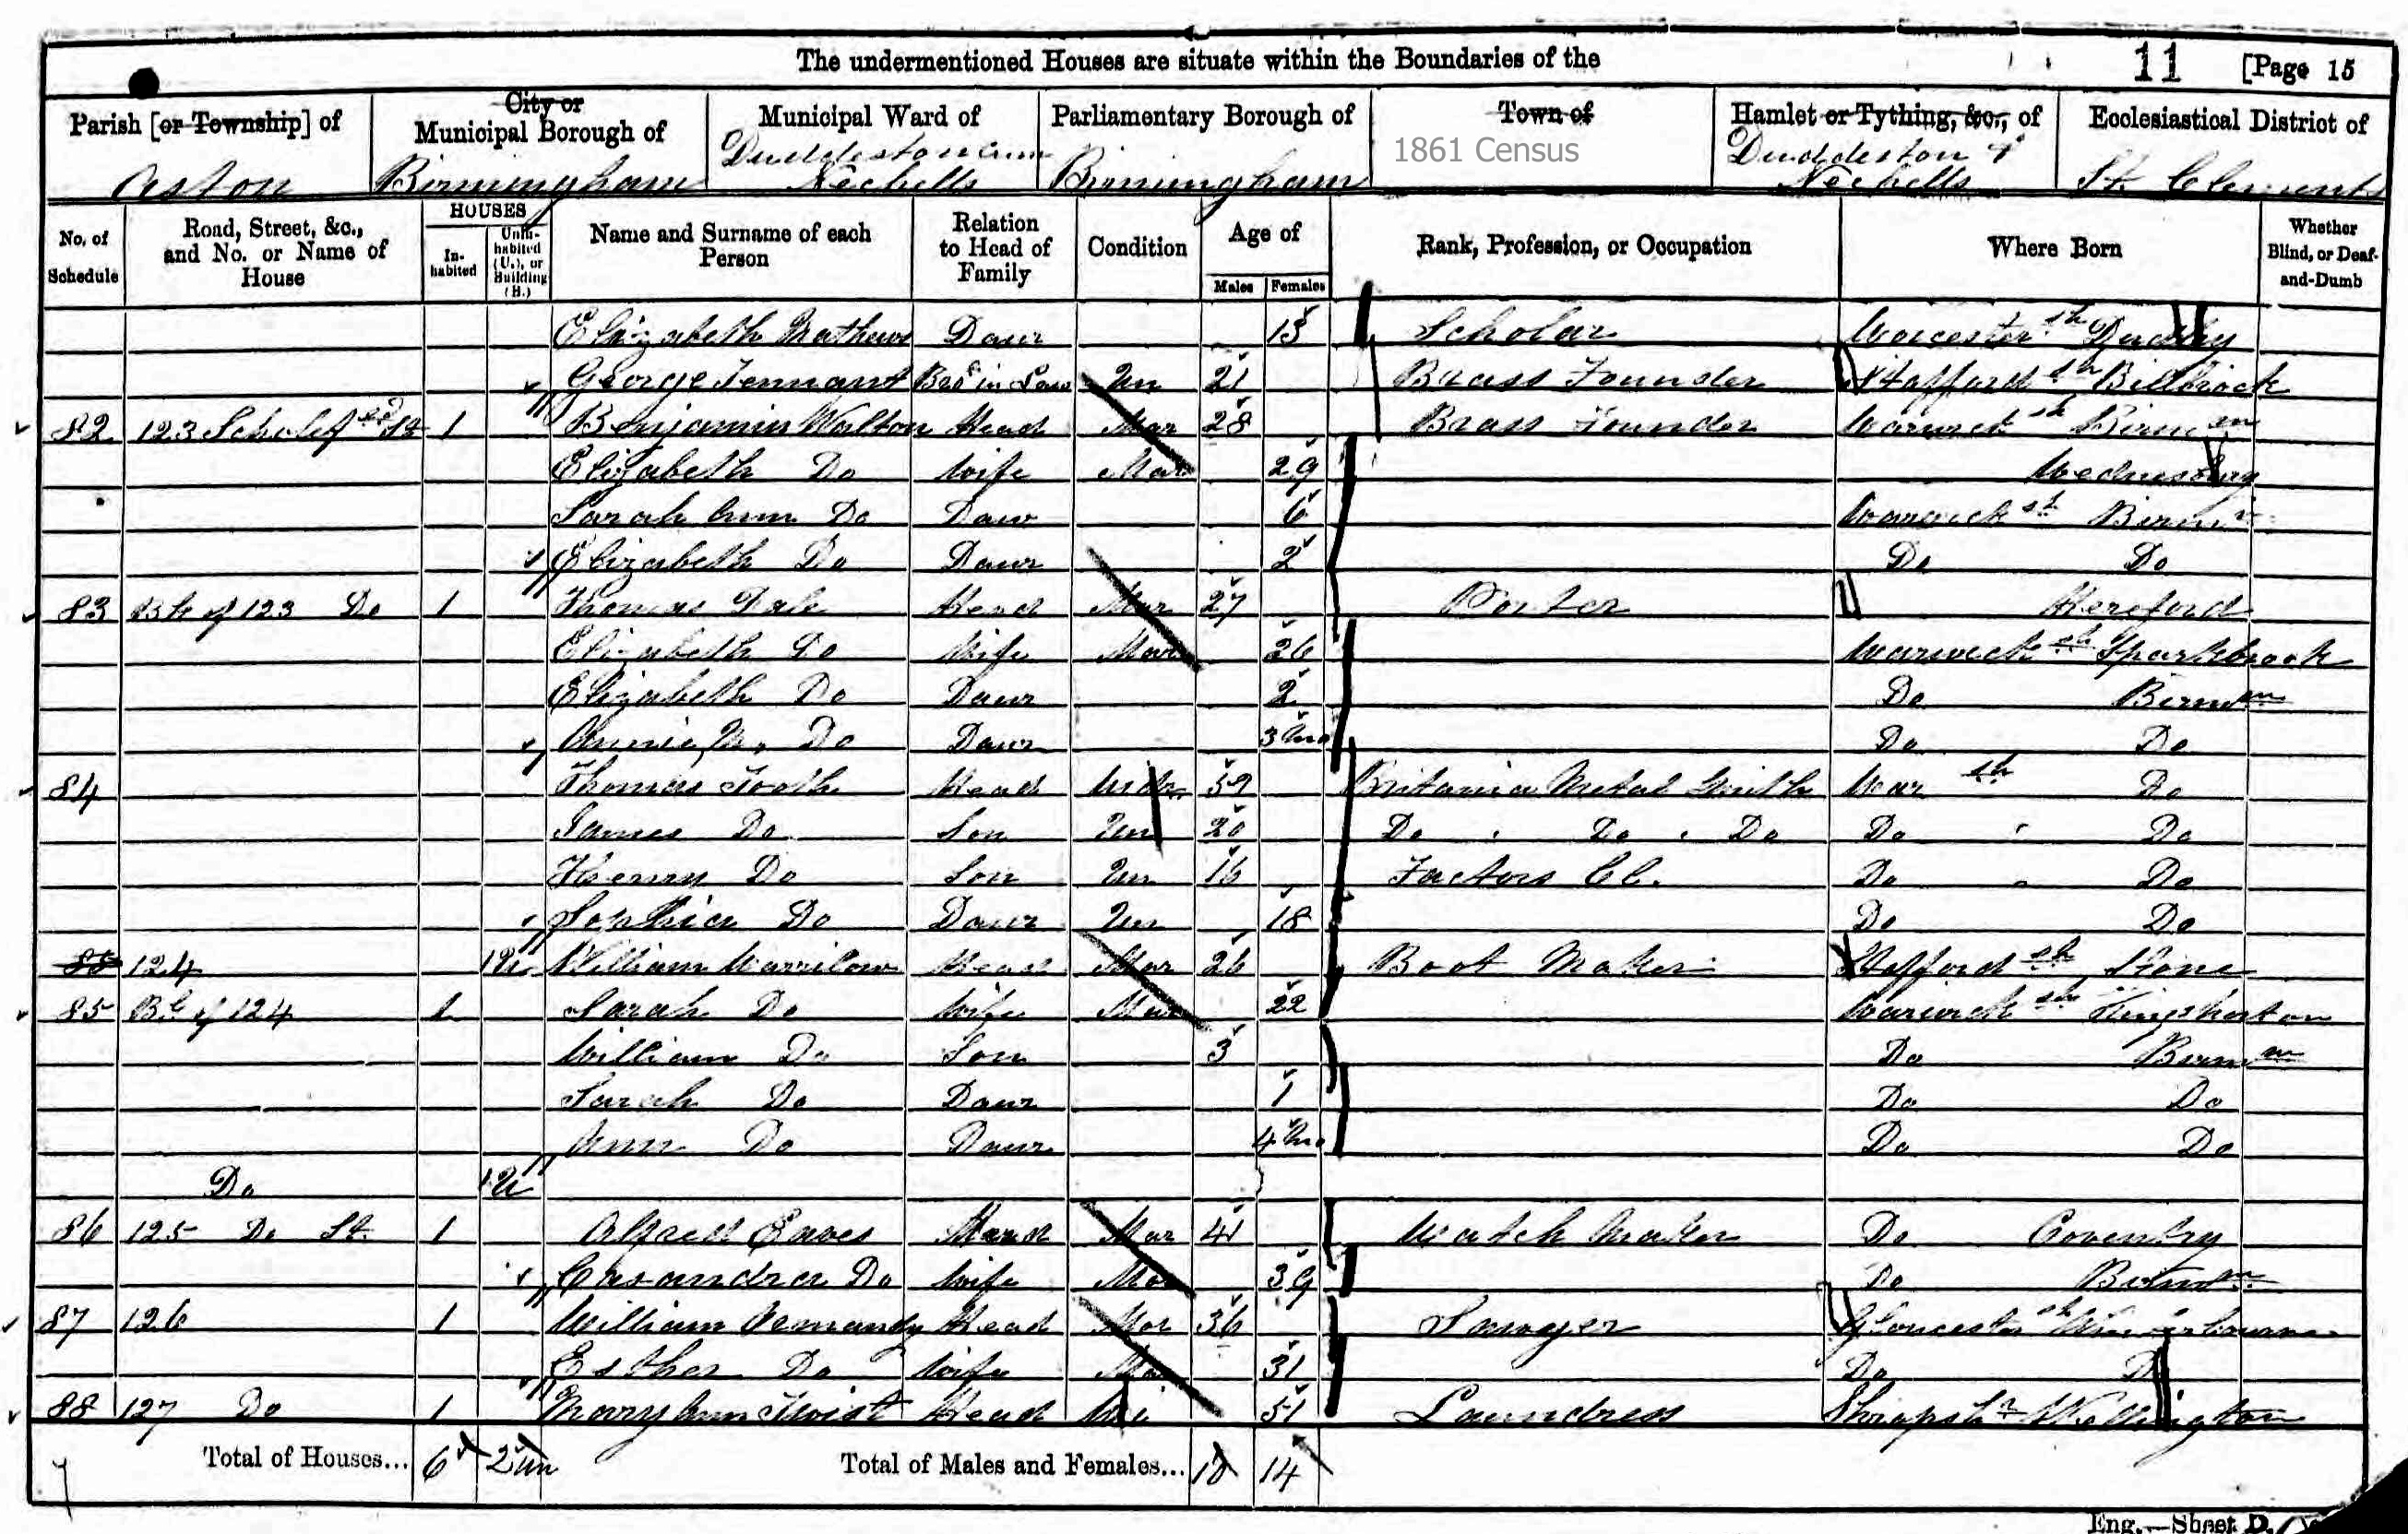 The undermentioned Houses are situate within the Boundaries of the
11 [Page 15
Parish [or Township] of
City or Municipal Borough of
Municipal Ward of
Parliamentary Borough of
Town of
Hamlet or Tything, &c., of
Ecclesiastical District of
Aston Birmingham Duddeston cum Nechells Birmingham 1861 Census Duddeston & Nechells St. Clements
No. of Schedule
Road, Street, &c., and No. or Name of House
HOUSES
In-habited
Unin-habited (U.), or Building (B.)
Name and Surname of each Person
Relation to Head of Family
Condition
Age of
Males Females
Rank, Profession, or Occupation
Where Born
Whether Blind, or Deaf-and-Dumb
Elizabeth Mathews Daur 13 Scholar Worcester sh Dudley
George Tennant Bro in Law Un 21 Brass Founder Stafford sh Bilbrook
82 123 Scholef ed St 1 Benjamin Walton Head Mar 28 Brass Founder Warwick sh Birm m
Elizabeth Do Wife Mar 29 Wednesbury
Sarah Ann Do Daur 6 Warwick sh Birm m
Elizabeth Do Daur 2 Do Do
83 Bk of 123 Do 1 Thomas Dale Head Mar 27 Porter Hereford
Elizabeth Do Wife Mar 26 Warwick sh Sparkbrook
Elizabeth Do Daur 2 Do Birm m
Annie M. Do Daur 3 Mo Do Do
84 Thomas Tooth Head Widr 59 Britania Metal Smith War sh Do
James Do Son Un 20 Do Do Do Do Do
Henry Do Son Un 16 Factors Cl. Do Do
Sophia Do Daur Un 18 Do Do
85 124 1U William Head Mar 26 Boot Maker Stafford sh Stone
85 Bk of 124 1 Sarah Do Wife Mar 22 Warwick sh Kingsnorton
William Do Son 3 Do Birm m
Sarah Do Daur 1 Do Do
Ann Do Daur 4 Mo Do Do
Do 1U
86 125 Do St 1 Alfred Eaves Head Mar 41 Watch Maker Do Coventry
Casandra Do Wife Mar 39 Do Birm m
87 126 1 William Head Mar 36 Sawyer Gloucester sh Winterbourne
Esther Do Wife Mar 31 Do Do
88 127 Do 1 Mary Ann Twist Head Wi 51 Laundress Shropsh r Wellington
Total of Houses... 6 2 un
Total of Males and Females... 10 14
Eng.—Sheet D.